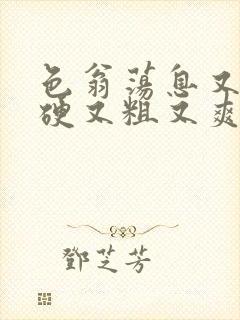 色翁荡息又
硬又粗又爽
鄧芝芳